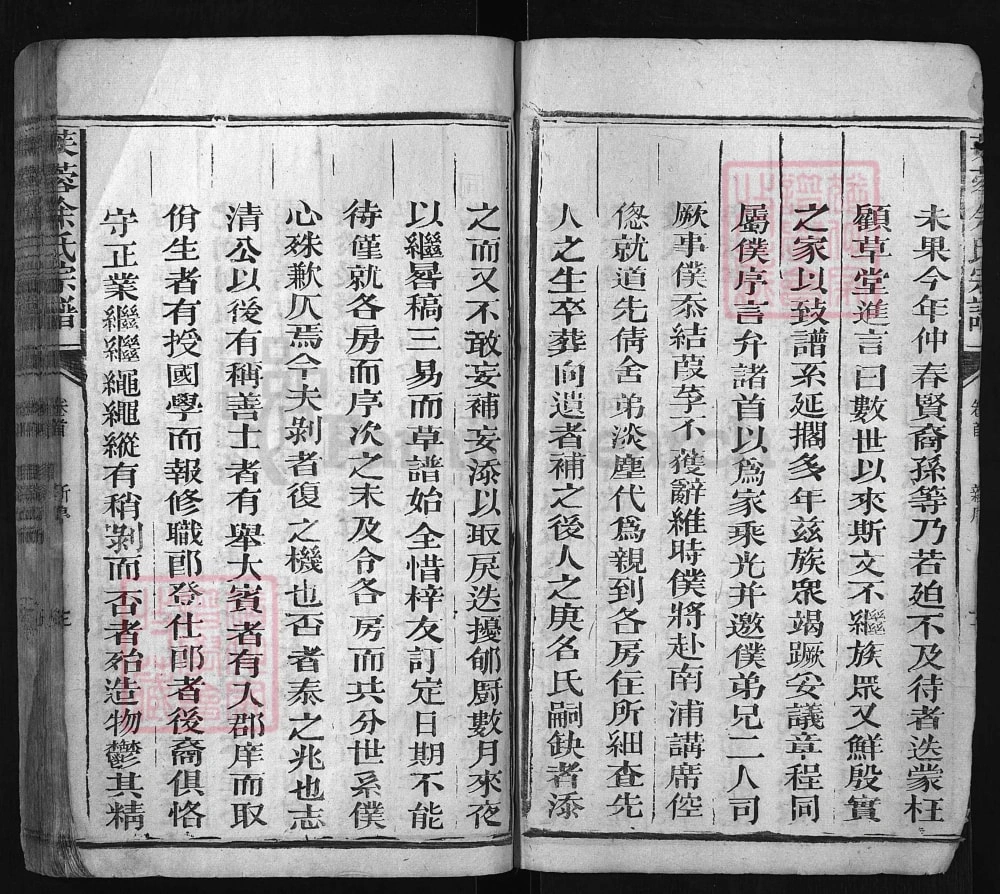 未果今年仲春賢裔孫等乃若廹不及待者迭蒙枉
顧草堂進言曰數世以來斯文不繼族眾又鮮殷實
之家以致譜系延擱多年兹族衆竭蹶妥議章程同
屬僕序言弁諸首以爲家乘光并邀僕弟兄二人司
厥事僕忝結葭莩不獲辭維時僕將赴南浦講席倥
偬就道先倩舍弟淡塵代爲親到各房住所細查先
人之生卒葬向遺者補之後人之庚名氏嗣缺者添
之而又不敢妄補妄添以取戾迭擾郇厨數月來夜
以繼晷稿三易而草譜始全惜梓友訂定日期不能
待僅就各房而序次之未及合各房而共分世系僕
心殊歉仄焉今夫剝者復之機也否者泰之兆也志
清公以後有稱善士者有舉大賓者有入郡庠而取
佾生者有授國學而報修職郎登仕郎者後裔俱恪
守正業繼繼繩繩縱有稍剝而否者殆造物鬱其精
芙蓉徐氏宗譜
卷首